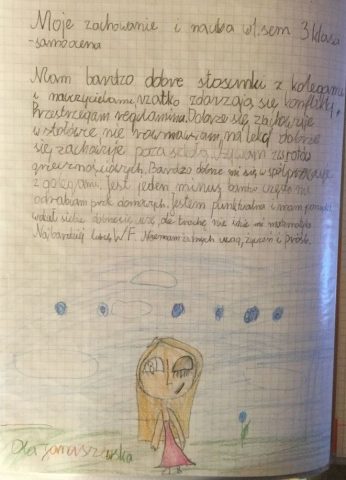 Moje zachowanie i nauka w I. sem 3 klasa
- samoocena
Mam bardzo dobre stosunki z kolegami
i nauczycielami, rzatko zdarzają się konflikty.
Przestrzegam regulaminu. Dobrze się zachowuje
w stołówce nie rozmawiam, na lekcji dobrze
się zachowuje poza szkołą używam zwrotów
grzecznościowych. Bardzo dobrze mi się współpracuje
z kolegami. Jest jeden minus bardzo często nie
odrabiam prac domowych. Jestem punktualna i mam
siebie dobrze uczę, ale trochę nie idzie mi matematyka
Najbardziej lubię WF. Nie mam żadnych uwag, życzeń i próśb.
Ola Januszewska